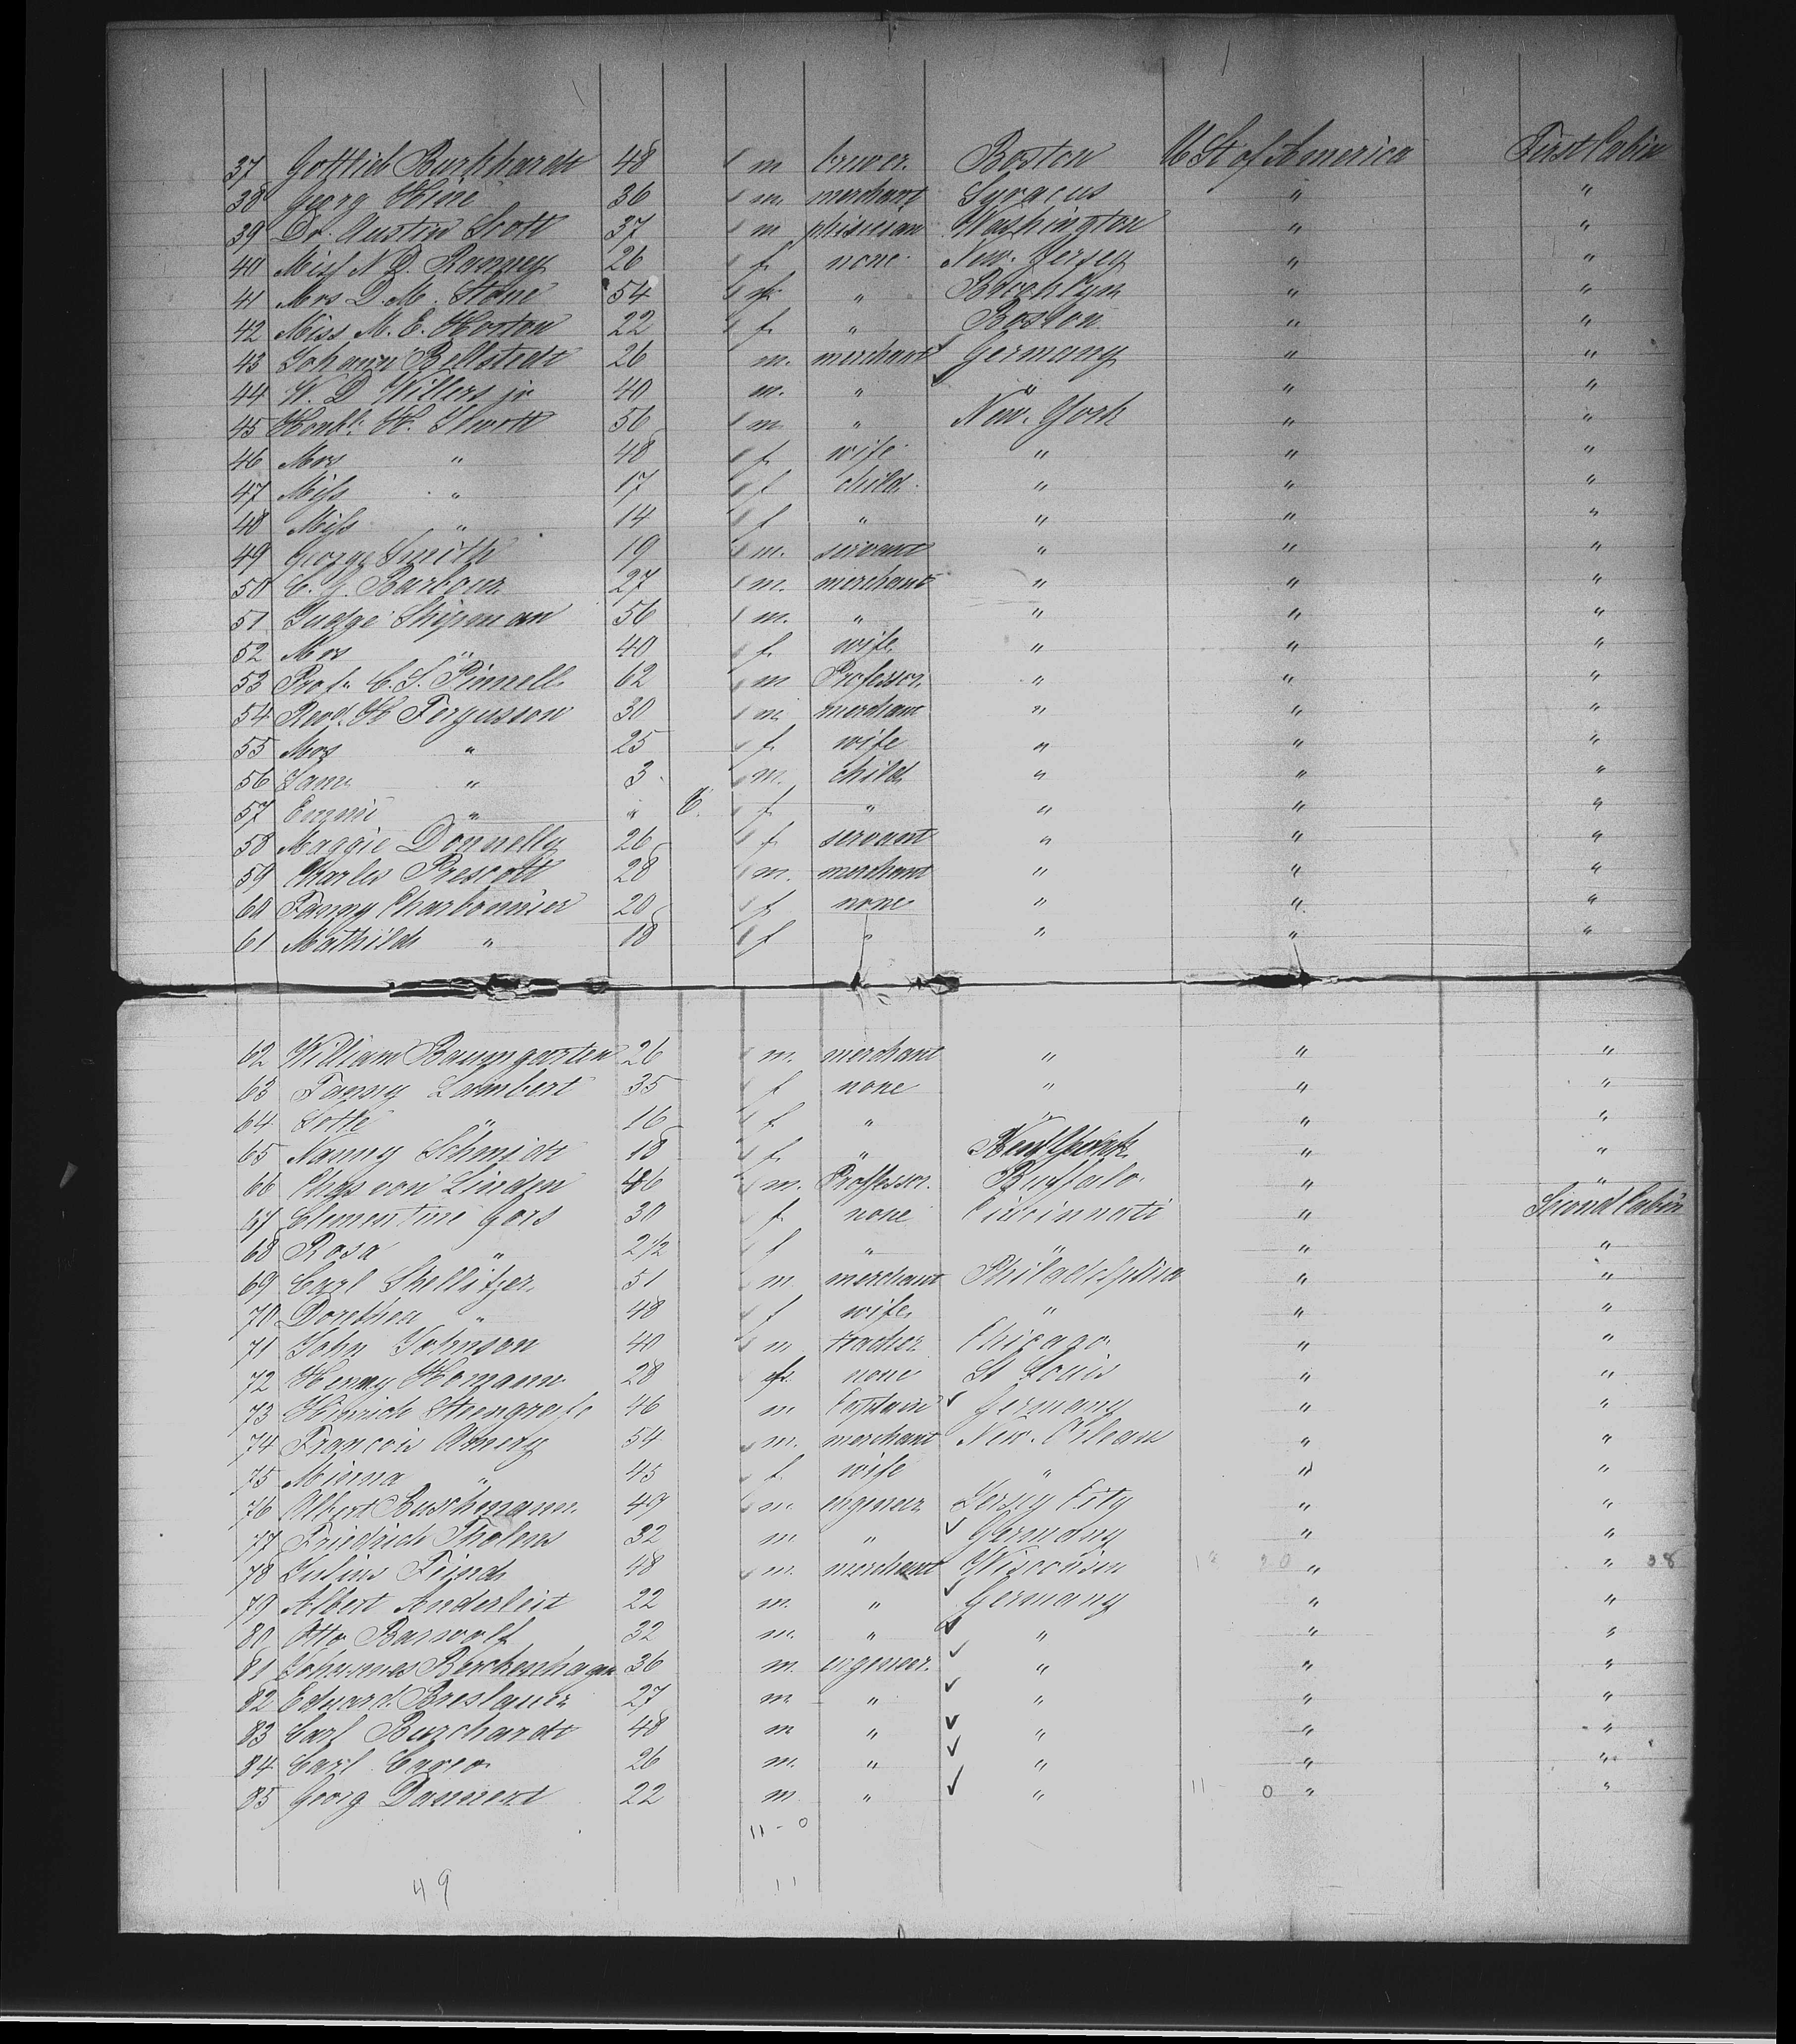 37 Gottlieb Burkhardt 48 m bruver. Boston U St of America First Cabin
38 Georg Hine 36 m. merchant Syracus " "
39 Dr. Austin Scott 37 m phisician Washington " "
40 Miss N. D. Ranney 26 f. none New. Jersey " "
41 Mrs D. M. Stone 54 f. " Brooklyn " "
42 Miss M. E. Horton 22 f. " Boston " "
43 Johann Bellstedt 26 m. merchant ✓ Germany " "
44 W. D. Willers jr 40 m. " ✓ " " "
45 Honbl. H. 56 m. " New. York " "
46 Mrs " 48 f. wife " " "
47 Miss " 17 f child. " " "
48 Miss " 14 f " " " "
49 George Smith 19 m. servant " " "
50 C. G. Barbour 27 m. merchant " " "
51 Judge Shipman 56 m. " " " "
52 Mrs " 40 f. wife " " "
53 Prof. C. S. 62 m Professor. " " "
54 Revd. H Fergusson 30 m. merchant " " "
55 Mrs " 25 f. wife " " "
56 Sam. " 3. m. child " " "
57 " " 6. f " " " "
58 Maggie Donnelly 26 f servant " " "
59 Charles Prescott 28 m. merchant " " "
60 Fanny Charbonnier 20 f none " " "
61 Mathilde " 18 f " " " "
62 William Baumgarten 26 m. merchant " " "
63 Fanny Lambert 35 f none " " "
64 Lotte " 16 f " " " "
65 Nanny Schmidt 18 f. " New York " "
66 Chas von Linden 46 m. Proffessor. Buffalo. " "
67 Clementine Gors 30 f. none Cincinnati " Second Cabin
68 Rosa " 2 1/2 f " " " "
69 Carl Shellitzer. 51 m merchant Philadelphia " "
70 Dorethea " 48 f wife " " "
71 John Johnson 40 m teacher Chicago. " "
72 Henny Homann. 28 f. none St Louis " "
73 Hinrich Steengrafe 46 m Captain ✓ Germany " "
74 Francois 54 m. merchant New. Orleans " "
75 Minna " 45 f. wife " " "
76 Albert Buschmann. 49 m. engineer Jersey City " "
77 Friedrich Tholens 32 m " ✓ Germany " "
78 Julius Feind 48 m. merchant Wisconsin 18 20 " " 38
79 Albert Anderleit 22 m. " ✓ Germany " "
80 Otto Barwolf 32 m. " ✓ " " "
81 Johannes Berckenhagen 36 m. engineer. ✓ " " "
82 Eduard. Breslauer 27 m " ✓ " " "
83 Carl Burchardt 48 m " ✓ " " "
84 Carl 26 m. " ✓ " " "
85 Georg Dannert 22 m " ✓ " 11 - 0 " "
11 - 0
49 11